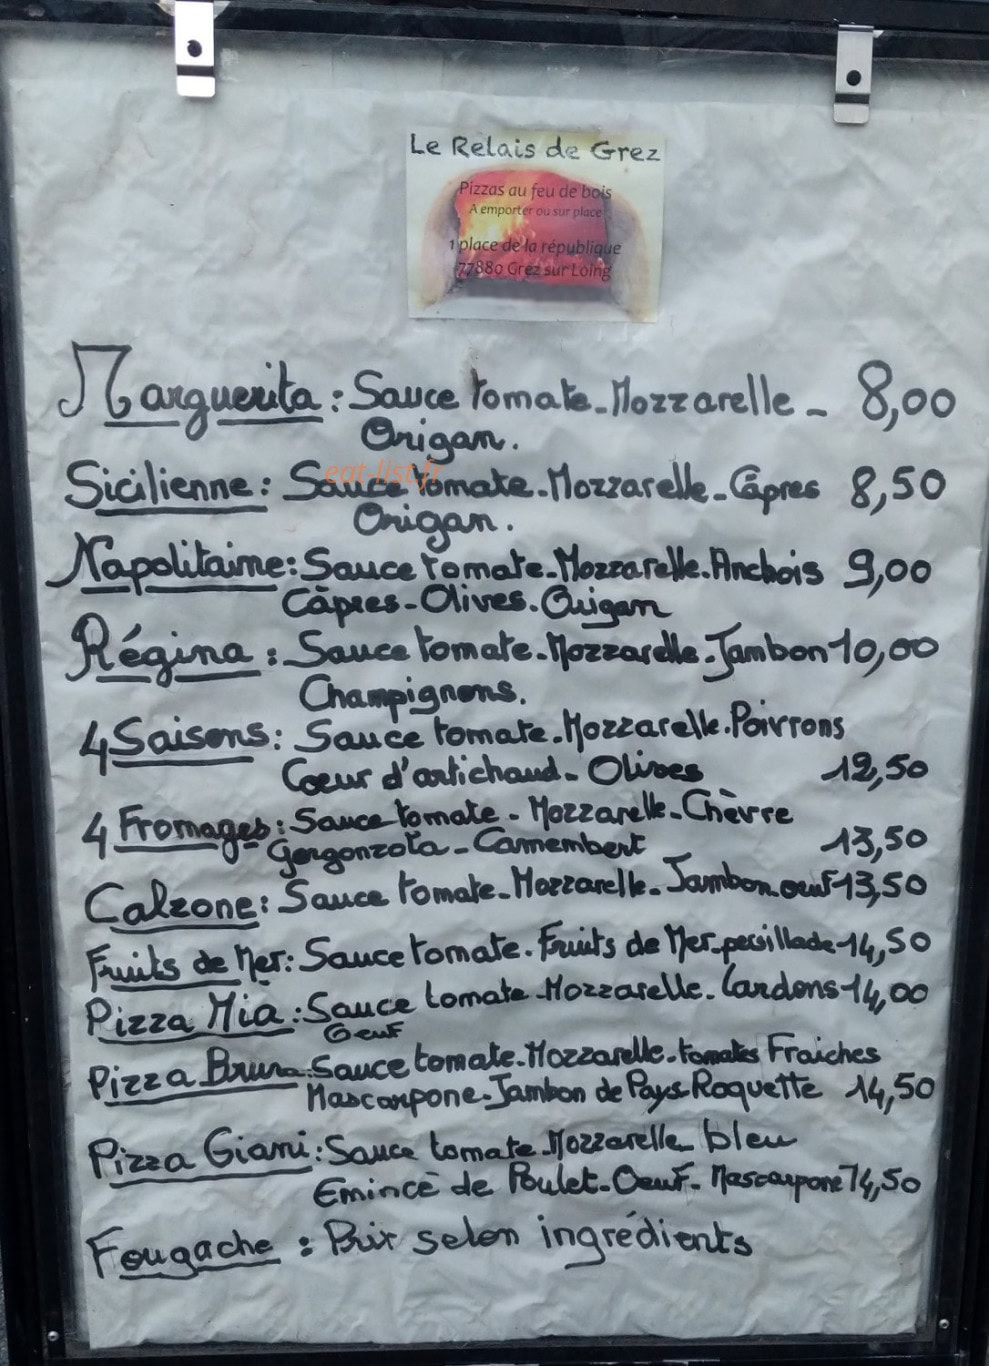 Le Relais de Grez
Pizzas au feu de bois
A emporter ou sur place
1 place de la république
77880 Grez sur Loing
Marguerita : Sauce tomate - Mozzarelle - 8,00
Origan.
eat-list.fr
Sicilienne : Sauce tomate - Mozzarelle - Câpres 8,50
Origan.
Napolitaine : Sauce tomate - Mozzarelle - Anchois 9,00
Câpres - Olives - Origan
Régina : Sauce tomate - Mozzarelle - Jambon 10,00
Champignons.
4 Saisons : Sauce tomate - Mozzarelle - Poivrons
Coeur d'artichaud - Olives 12,50
4 Fromages : Sauce tomate - Mozzarelle - Chèvre
Gorgonzola - Camembert 13,50
Calzone : Sauce tomate - Mozzarelle - Jambon - oeuf 13,50
Fruits de Mer : Sauce tomate - Fruits de Mer - persillade 14,50
Pizza Mia : Sauce tomate - Mozzarelle - Lardons 14,00
Oeuf
Pizza Bruna : Sauce tomate - Mozzarelle - tomates Fraiches
Mascarpone - Jambon de Pays - Roquette 14,50
Pizza Giani : Sauce tomate - Mozzarelle bleu
Emincè de Poulet - Oeuf - Mascarpone 14,50
Fougache : Prix selon ingrédients